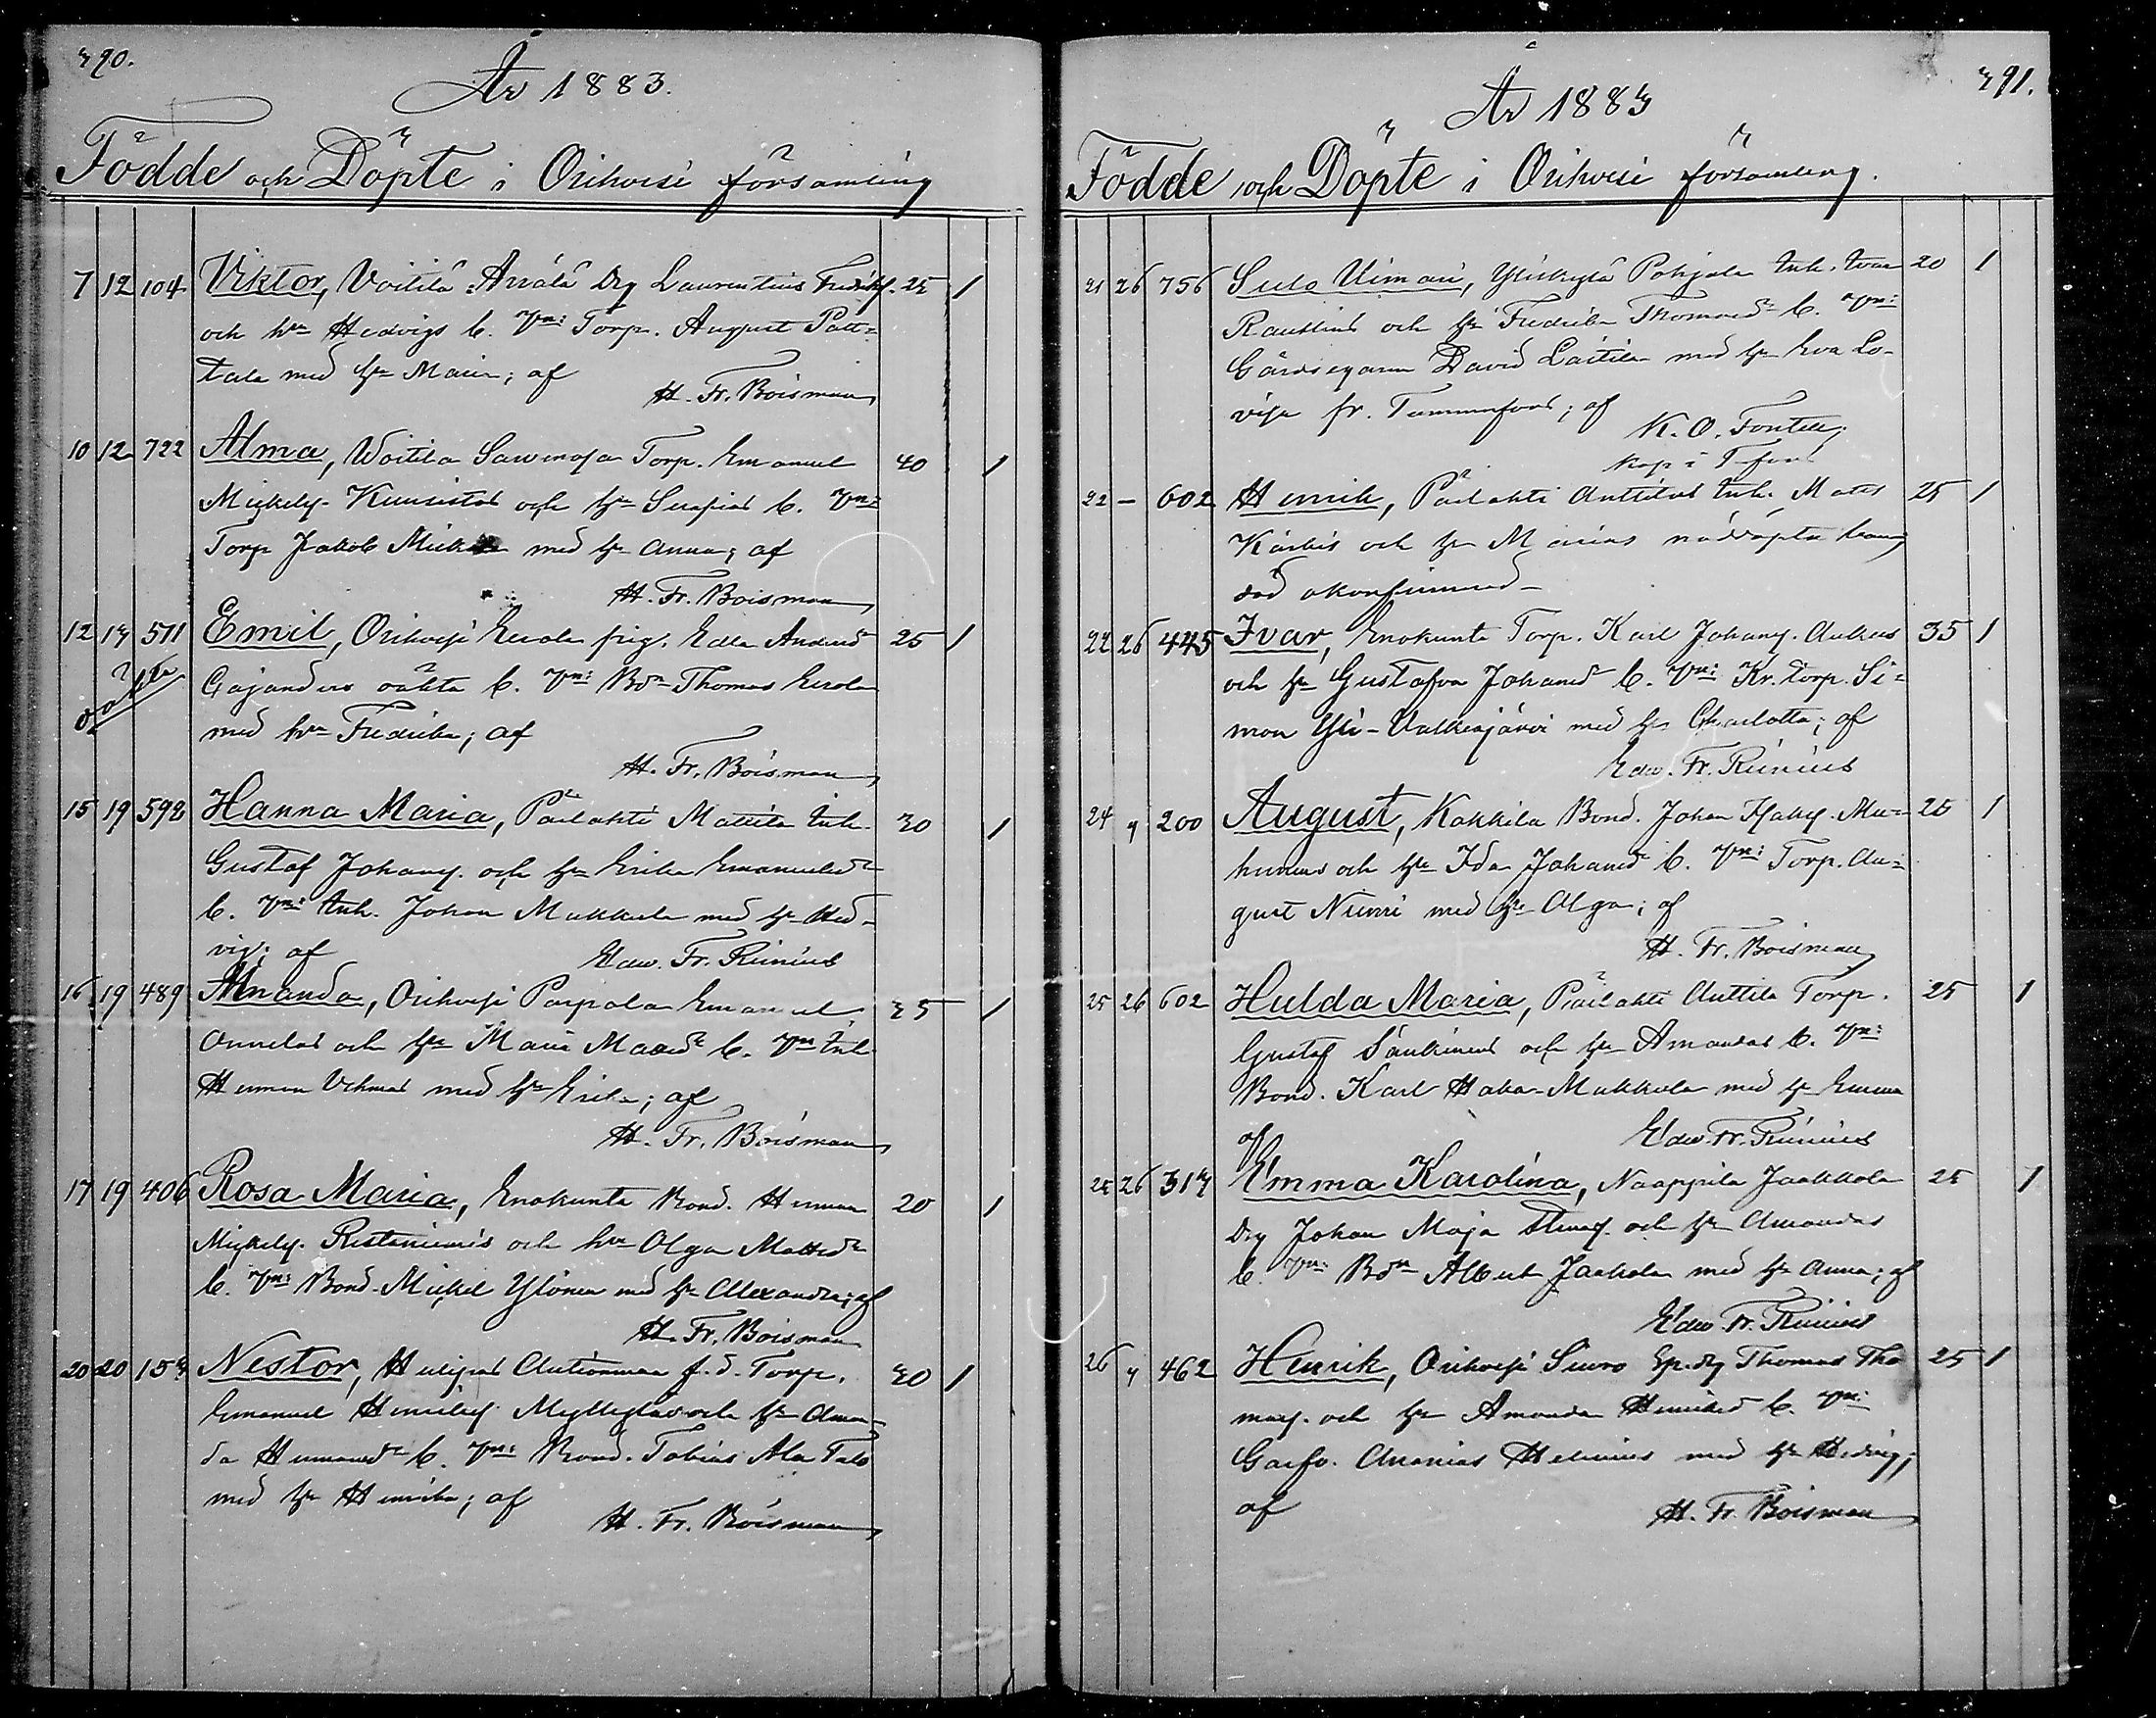 390.
År 1883.
Födde och Döpte i Orihvesi församling
7 12 104 Viktor, Voitila Arrälä Drg Laurentius Fredriks. 25 1
och hu Hedvigs b. Vn: Torp. August Patt-
tala med hu Maria; af
H. Fr. Boisman
10 12 722 Alma, Woitila Sawenoja Torp. Emanuel 40 1
Mickels. Kuusistos och hu Serafias b. Vn:
Torp Jakob med hu Anna; af
H. Fr. Boisman
12 13 511 Emil, Orihvesi Eerola pig. Edla Andersdr 25 1
oäkta
Cajanders oäkta b. Vn: Bdn Thomas Eerola
med hu Fredrika; af
H. Fr. Boisman
15 19 592 Hanna Maria, Päilahti Mattila Inh. 30 1
Gustaf Johans. och hu Erika Emanuelsdr
b. Vn: Inh. Johan Mukkala med hu Hed-
vig; af Edw. Fr. Rinius
16 19 489 Amanda, Orihvesi Parpala Emanuel 35 1
Annelas och hu Maria Matsdr b. Vn Inh
Herman Vehmas med hu Erika; af
H. Fr. Boisman
17 19 406 Rosa Maria, Enokunta Bond. Herman 20 1
Mickels. Ristaniemis och hu Olga Mattsdr
b. Vn: Bond. Mickel Ylönen med hu Alexandra; af
H. Fr. Boisman
20 20 153 Nestor, Huligas Antionmaa f.d. Torp. 30 1
Emanuel Henriks. och hu Aman-
da Hermansdr b. Vn: Bond. Tobias Ala Talo
med hu Henrika; af
H. Fr. Boisman
391.
År 1883
Födde och Döpte i Orihvesi församling.
21 26 756 Sulo Nimari, Ylikylä Pohjala Inh. Ivar 20 1
och hu Fredrika Thomasdr b. Vn:
Gårdsegaren David Laitila med hu Eva Lo-
visa fr. Tammerfors; af
K. O. Fontell,
kap i T.fors
22 - 602 Henrik, Päilahti Anttilas Inh. Mats 25 1
Kärkis och hu Marias nöddöpta barn
död okonfirmerad
22 26 445 Ivar, Enokunta Torp. Karl Johans. 35 1
och hu Gustafva Johansdr b. Vn: Kr. torp. Si-
mon Yli-Valkeajärvi med hu Charlotta; af
Edw. Fr. Rinius
24 " 200 August, Kakkila Bond. Johan Isaks. Mu- 25 1
hunens och hu Ida Johansdr b. Vn: Torp. Au-
gust Niemi med hu Olga; af
H. Fr. Boisman
25 26 602 Hulda Maria, Päilahti Anttila Torp. 25 1
Gustaf Säukinens och hu Amandas b. Vn:
Bond. Karl Haka-Mukkala med hu Emma
af Edw. Fr. Rinius
25 26 313 Emma Karolina, Naappila Jaakkola 25 1
Drg Johan Maja och hu Amandas
b. Vn: Bdn Albert Jaakola med hu Anna; af
Edw. Fr. Rinius
26 " 462 Henrik, Orihvesi Siuro Sp.drg Thomas Tho 25 1
mas. och hu Amanda Henriksd b. Vn:
Garfv. Ananias Helenius med hu Hedvig;
af H. Fr. Boisman